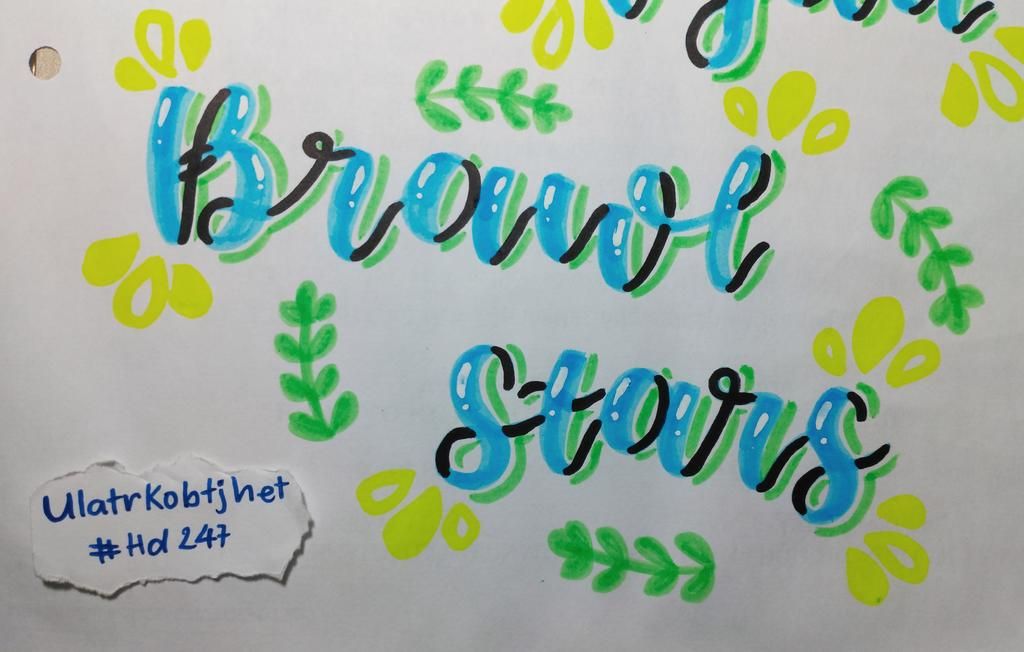 Brawl
Stars
UlatrKobtjhet
#Hd 247